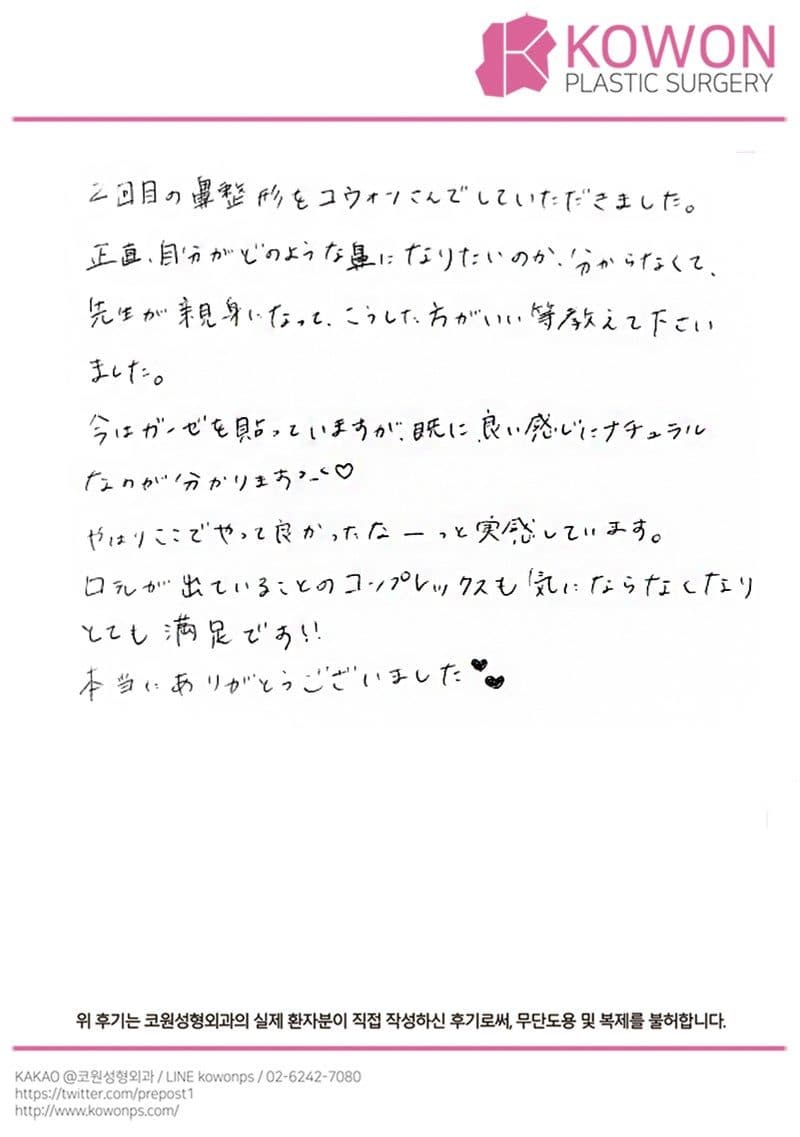 KOWON
PLASTIC SURGERY
2回目の鼻整形をコウォンさんでしていただきました。
正直、自分がどのような鼻になりたいのか、分からなくて、
先生が親身になって、こうした方がいい等教えて下さい
ました。
今はガーゼを貼っていますが、既に良い感じにナチュラル
なのが分かります♡
やはりここでやって良かったなーっと実感しています。
口元が出ていることのコンプレックスも気にならなくなり
とても満足です!!
本当にありがとうございました♥♥
위 후기는 코원성형외과의 실제 환자분이 직접 작성하신 후기로써, 무단도용 및 복제를 불허합니다.
KAKAO @코원성형외과 / LINE kowonps / 02-6242-7080
https://twitter.com/prepost1
http://www.kowonps.com/